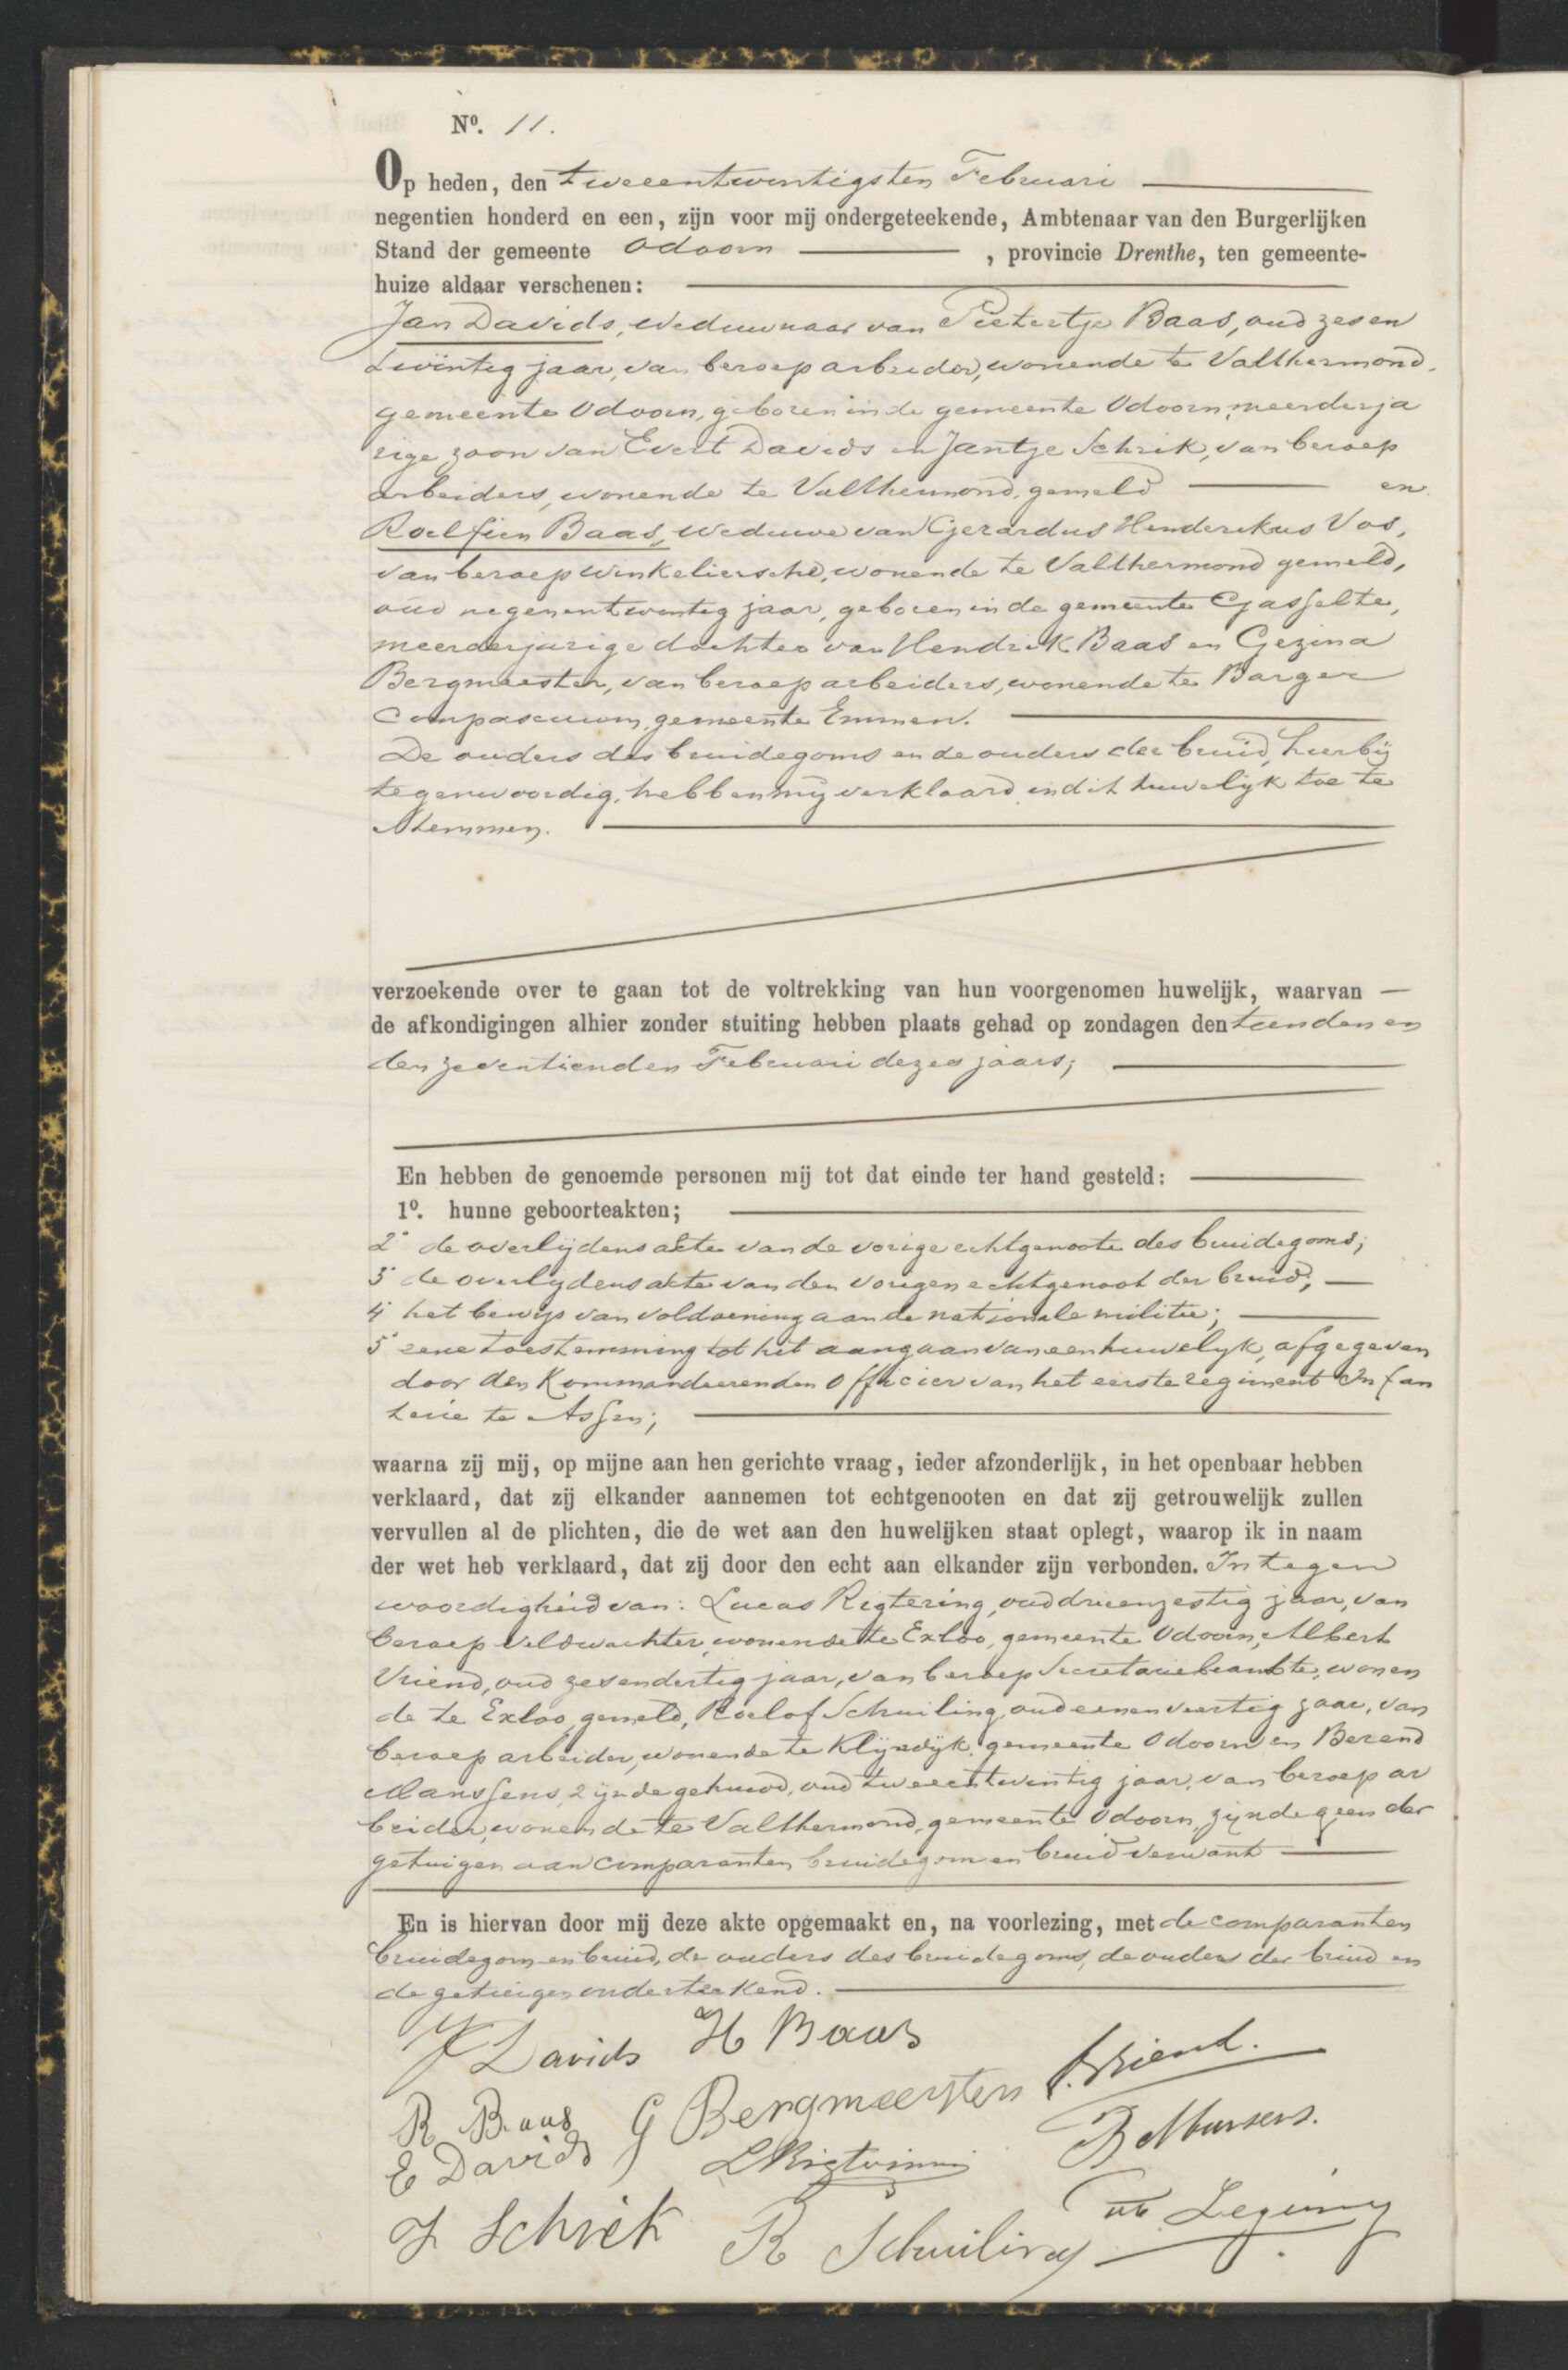 Nº. 11.
Op heden, den tweeentwintigsten Februari
negentien honderd en een, zijn voor mij ondergeteekende, Ambtenaar van den Burgerlijken
Stand der gemeente Odoorn , provincie Drenthe, ten gemeente-
huize aldaar verschenen:
Jan Davids, weduwnaar van Pietertje Baas, oud zes en
twintig jaar, van beroep arbeider, wonende te Valthermond,
gemeente Odoorn, geboren in de gemeente Odoorn, meerderja
rige zoon van Evert Davids en Jantje Schrik, van beroep
arbeiders, wonende te Valthermond, gemeld en
Roelfien Baas, weduwe van Gerardus Henderikus Vos,
van beroep winkeliersche, wonende te Valthermond gemeld,
oud negenentwintig jaar, geboren in de gemeente Gasselte,
meerderjarige dochter van Hendrik Baas en Gezina
Bergmeester, van beroep arbeiders, wonende te Barger
Compascuum, gemeente Emmen.
De ouders des bruidegoms en de ouders der bruid, hierbij
tegenwoordig, hebben mij verklaard in dit huwelijk toe te
stemmen.
verzoekende over te gaan tot de voltrekking van hun voorgenomen huwelijk, waarvan
de afkondigingen alhier zonder stuiting hebben plaats gehad op zondagen den tienden en
den zeventienden Februari dezes jaars;
En hebben de genoemde personen mij tot dat einde ter hand gesteld:
1º. hunne geboorteakten;
2° de overlijdensakte van de vorige echtgenoote des bruidegoms;
3° de overlijdensakte van den vorigen echtgenoot der bruid;
4° het bewijs van voldoening aan de nationale militie;
5° eene toestemming tot het aangaan van een huwelijk, afgegeven
door den Kommandeerenden Officier van het eerste regiment Infan
terie te Assen;
waarna zij mij, op mijne aan hen gerichte vraag, ieder afzonderlijk, in het openbaar hebben
verklaard, dat zij elkander aannemen tot echtgenooten en dat zij getrouwelijk zullen
vervullen al de plichten, die de wet aan den huwelijken staat oplegt, waarop ik in naam
der wet heb verklaard, dat zij door den echt aan elkander zijn verbonden. In tegen
woordigheid van: Lucas Rigtering, oud drieenzestig jaar, van
beroep veldwachter, wonende te Exloo, gemeente Odoorn, Albert
Vriend, oud zesendertig jaar, van beroep Secretariebeambte, wonen
de te Exloo, gemeld, Roelof Schuiling, oud eenenveertig jaar, van
beroep arbeider, wonende te Klijndijk, gemeente Odoorn en Berend
Manssens, zijnde gehuwd, oud tweeentwintig jaar, van beroep ar
beider, wonende te Valthermond, gemeente Odoorn, zijnde geen der
getuigen aan comparanten bruidegom en bruid verwant
En is hiervan door mij deze akte opgemaakt en, na voorlezing, met de comparanten
bruidegom en bruid, de ouders des bruidegoms, de ouders der bruid en
de getuigen onderteekend.
J Davids H Baas
R Baas G Bergmeesters A. Vriend.
E Davids L Rigtering B Mansens.
J Schrik R Schuiling